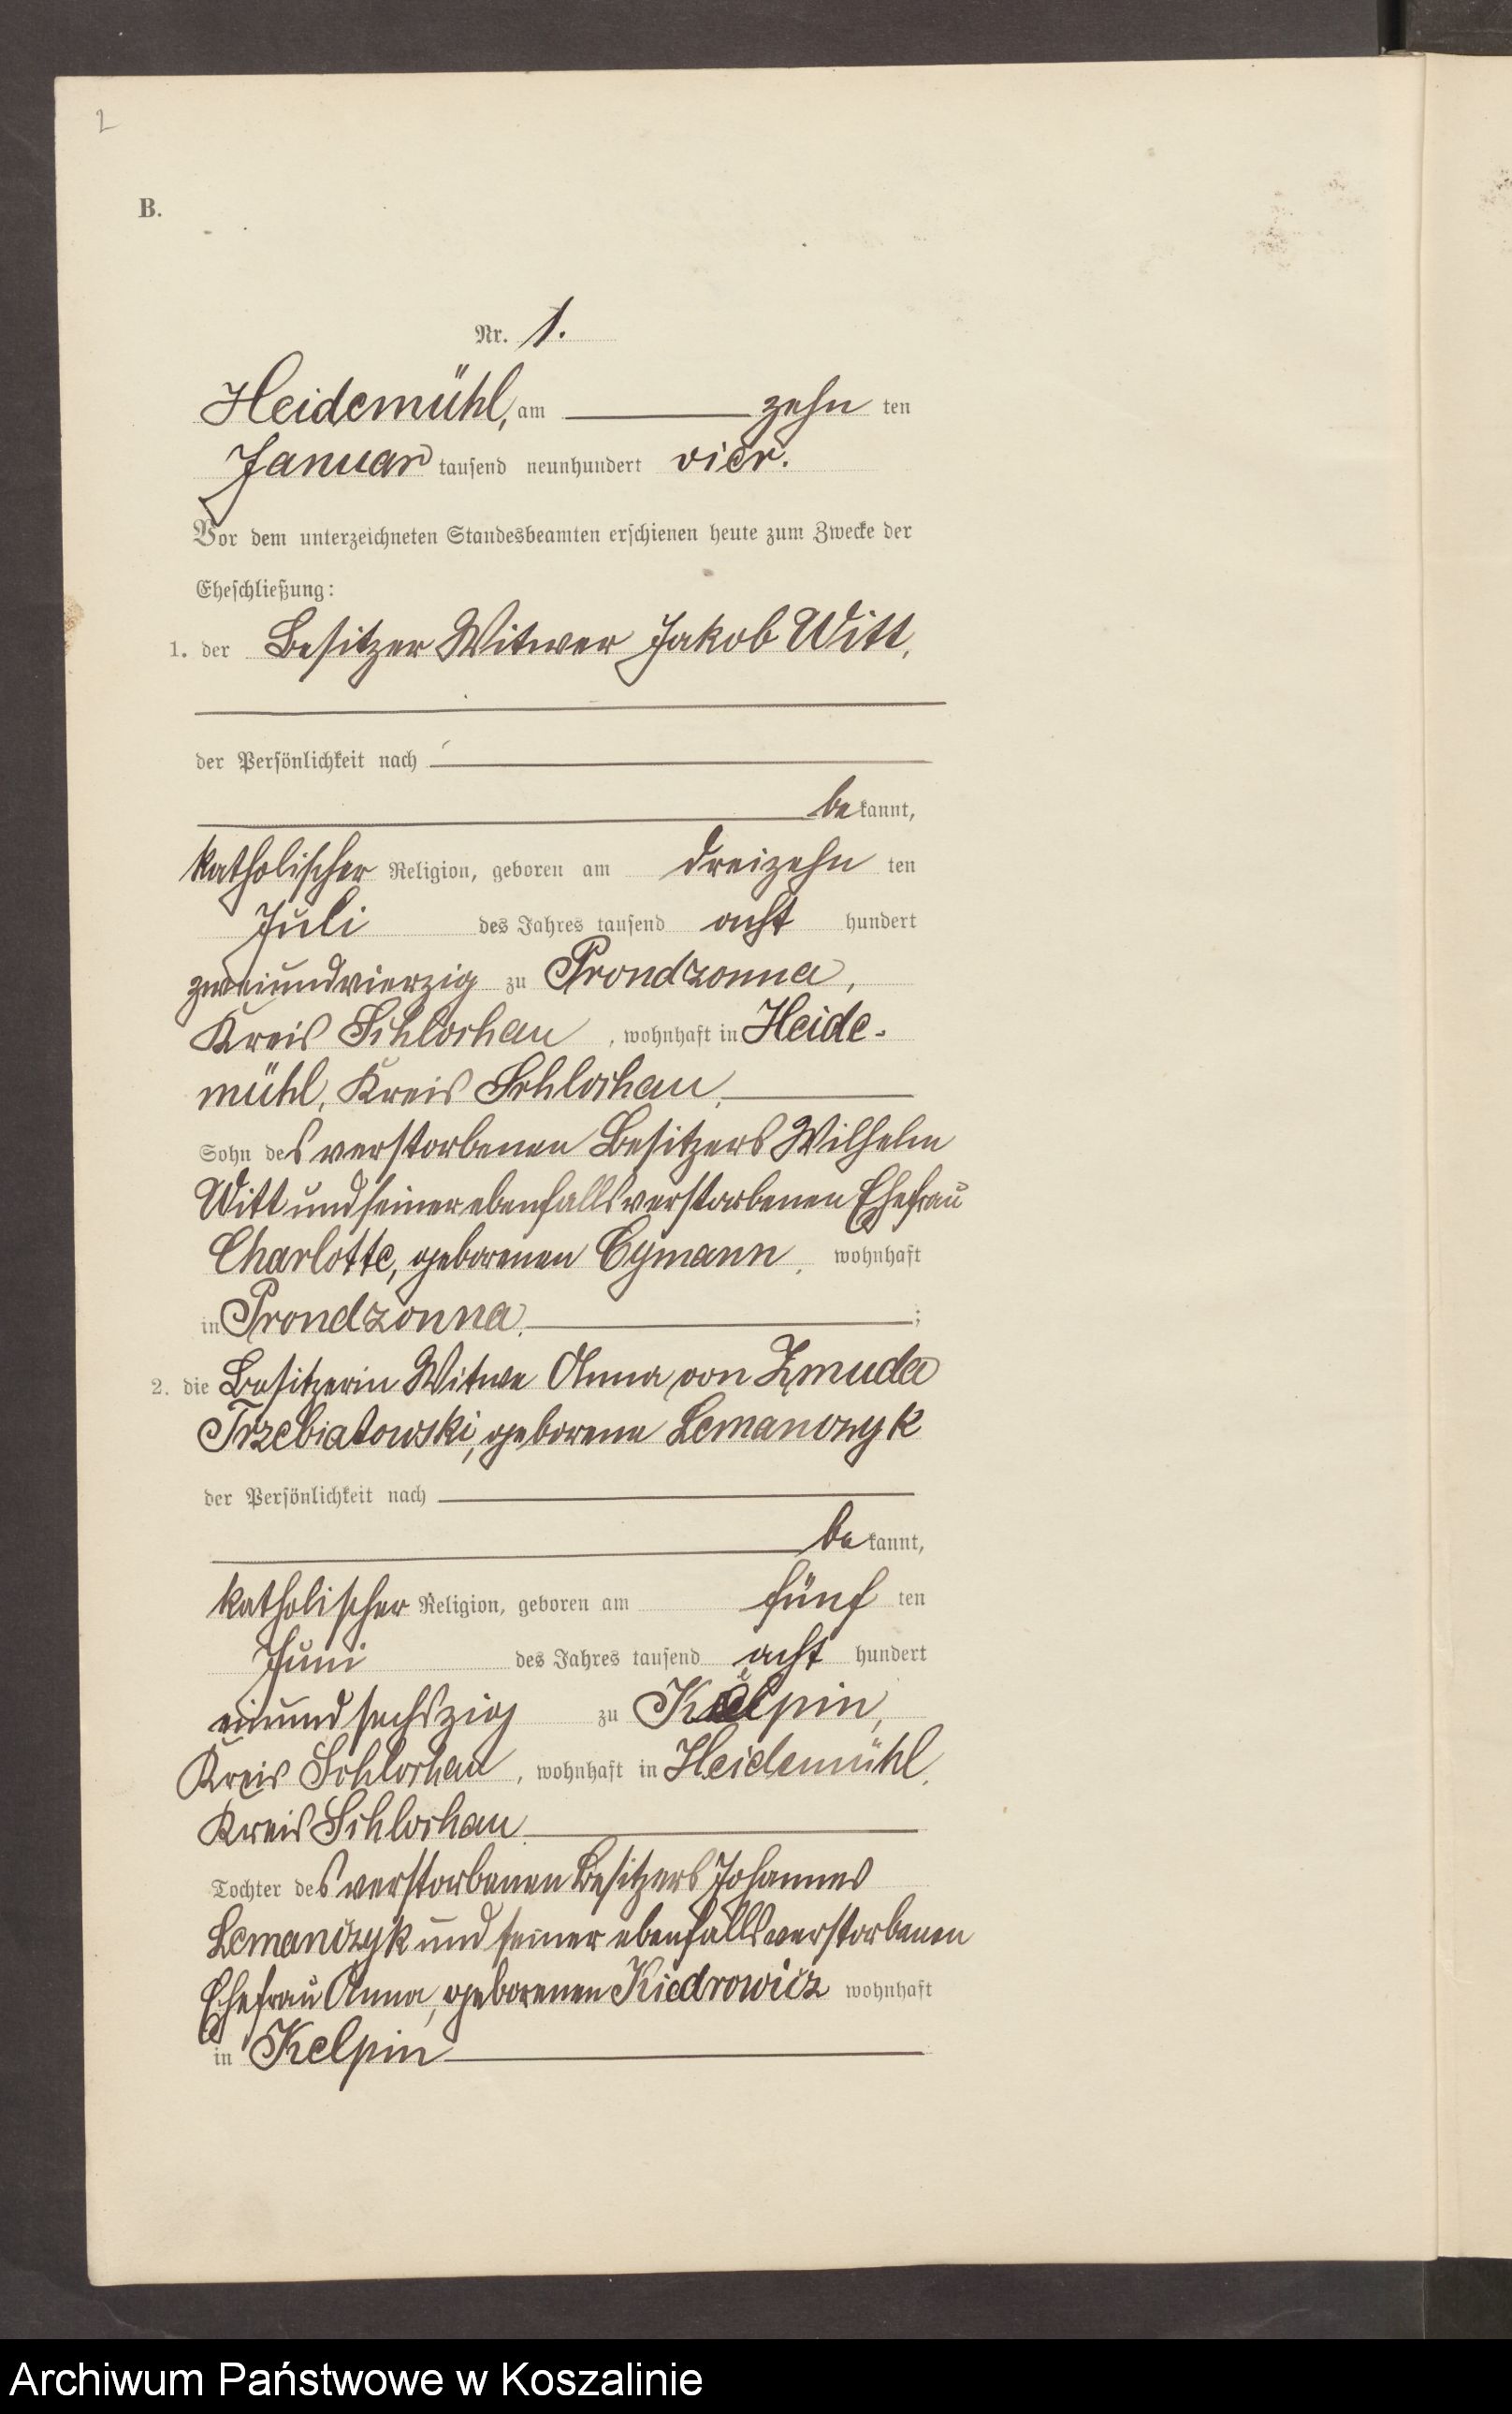 2
B.
Nr. 1.
Heidemühl, am zehn ten
Januar tausend neunhundert vier.
Vor dem unterzeichneten Standesbeamten erschienen heute zum Zwecke der
Eheschließung:
1. der Besitzer Witwer Jakob Witt,
der Persönlichkeit nach
be kannt,
katholischer Religion, geboren am dreizehn ten
Juli des Jahres tausend acht hundert
zweiundvierzig zu Prondzonna,
Kreis Schlochau, wohnhaft in Heide-
mühl, Kreis Schlochau,
Sohn des verstorbenen Besitzers Wilhelm
Witt und seiner ebenfalls verstorbenen Ehefrau
Charlotte, geborenen Cymann, wohnhaft
in Prondzonna, ;
2. die Besitzerin Witwe Anna von Zmuda
Trzebiatowski, geborene Lemanczyk
der Persönlichkeit nach
be kannt,
katholischer Religion, geboren am fünf ten
Juni des Jahres tausend acht hundert
einundsechszig zu Kelpin,
Kreis Schlochau, wohnhaft in Heidemühl,
Kreis Schlochau,
Tochter des verstorbenen Besitzers Johannes
Lemanczyk und seiner ebenfalls verstorbenen
Ehefrau Anna, geborenen Kiedrowicz wohnhaft
in Kelpin
Archiwum Państwowe w Koszalinie